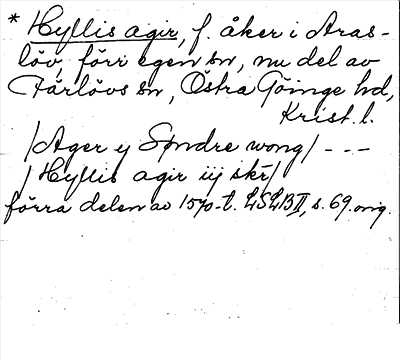 * Hyllis agir, f. åker i Aras-
löv, förr egen sn, nu del av
Färlövs sn, Östra Göinge hd,
Krist. l.
/Ager y Søndre wong/ - - -
/Hyllis agir iij skr/
förra delen av 1570-t. LSLB II, s. 69. orig.